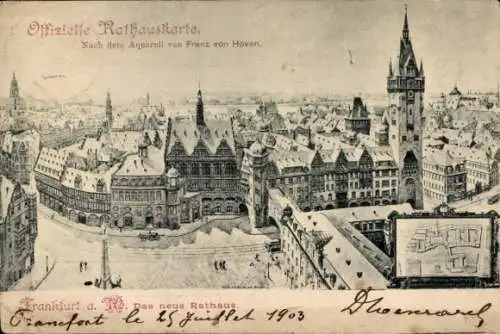 Offizielle Rathauskarte.
Nach dem Aquarell von Franz von Hoven.
Frankfurt a. M. Das neue Rathaus.
Francfort le 25 Juillet 1903